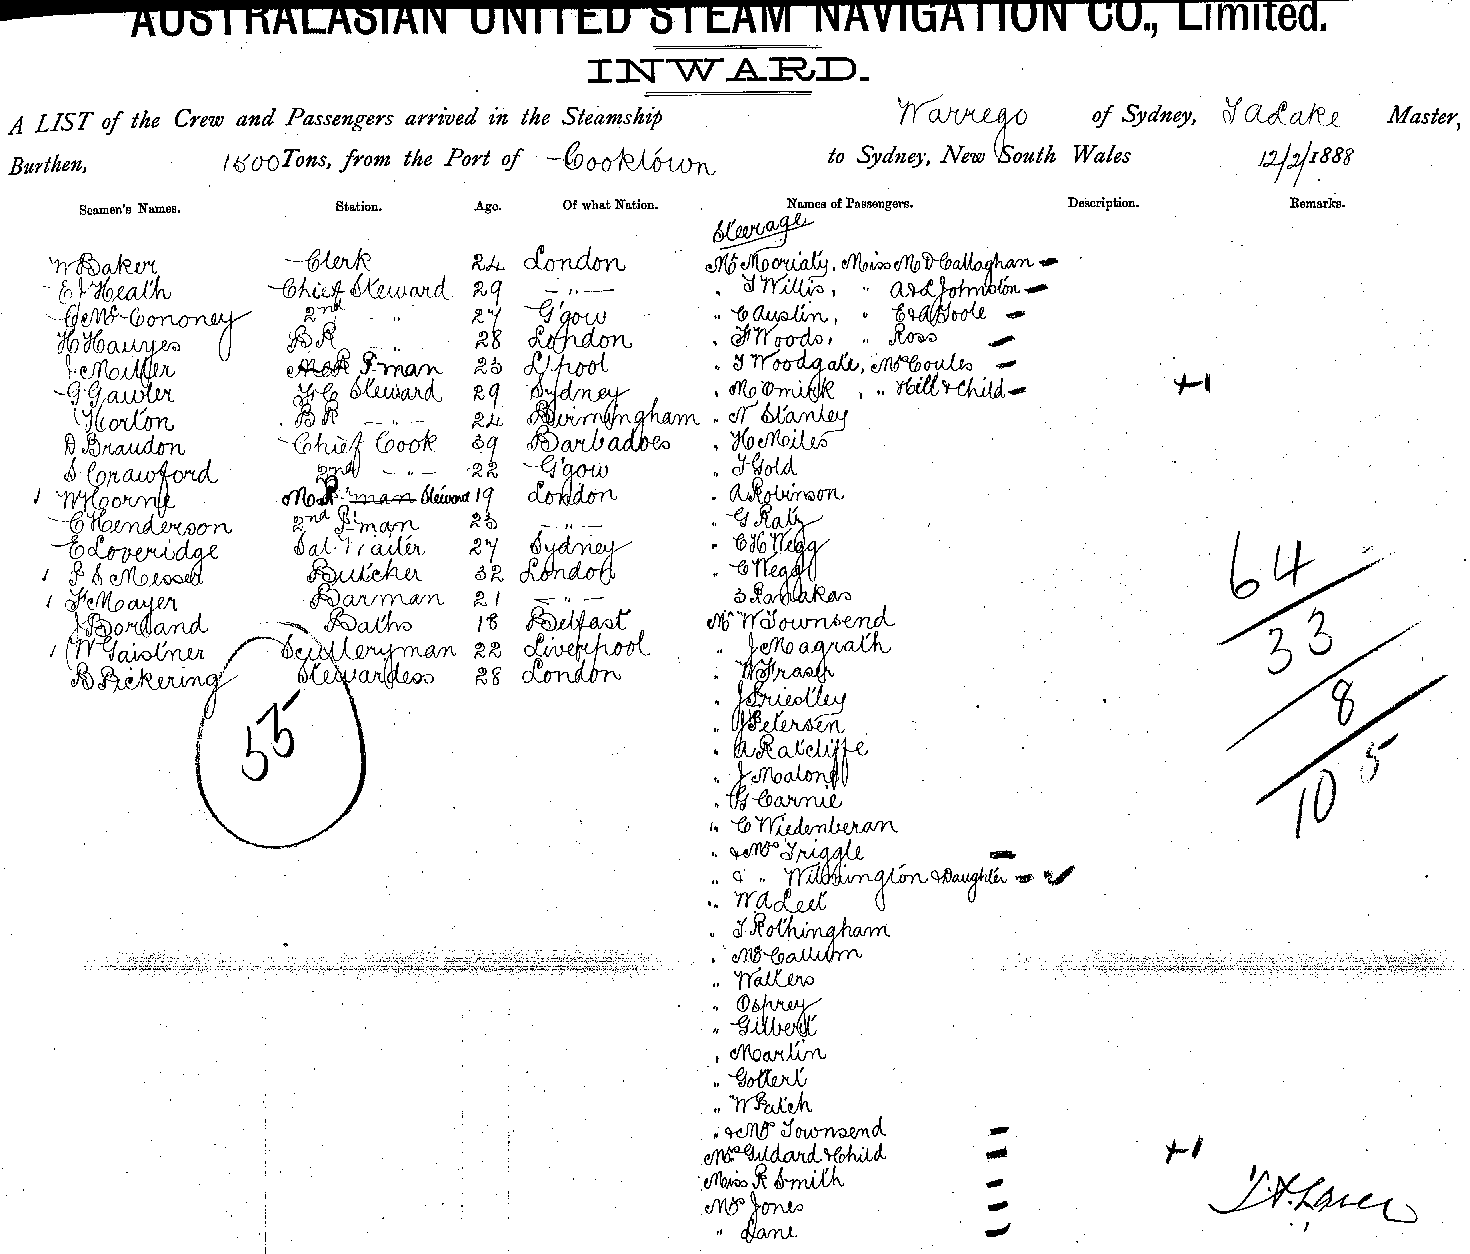 AUSTRALASIAN UNITED STEAM NAVIGATION CO., Limited.
INWARD.
A LIST of the Crew and Passengers arrived in the Steamship Warrego of Sydney, T A Lake Master,
Burthen, 1500 Tons, from the Port of Cooktown to Sydney, New South Wales 12/2/1888
Seamen's Names. Station. Age. Of what Nation. Names of Passengers. Description. Remarks.
Steerage
W Baker Clerk 24 London Mr Moriaty, Miss M O Callaghan -
E J Heath Chief Steward 29 -"- " T Willis, " A & L Johnston -
C McCononey 2nd " 27 G'gow " C Austin, " E & A Poole -
H Hawyes BR " 28 London " F Woods, " Ross -
J Miller P'man 23 L'pool " T Woodgate, Mrs Coules -
G Gawler F.C Steward 29 Sydney " McOmish, " Hill & Child - +1
Horton BR -"- 24 Birmingham " N Stanley
D Braudon Chief Cook 39 Barbadoes " H Meiles
S Crawford 2nd -"- 22 G'gow " T Gold
1 W Horne Steward 19 London " A Robinson
C Henderson 2nd P'man 23 -"- " G Ratz
E Loveridge Sal. Waiter 27 Sydney " C H Wegg
1 Butcher 32 London " C Wegg
1 F Mayer Barman 21 -"-
J Borland Baths 18 Belfast Mr W Townsend
1 W Gaistner Sculleryman 22 Liverpool " J Magrath
B Pickering Stewardess 28 London " W Fraser
" J Priestley
" J Petersen
" A Ratcliffe
" J Malone
" G Carnie
" C Wiedenberan
" & Mrs Triggle -
" & " Willington & Daughter -
" W A Leet
" T Rothingham
" McCallum
" Walters
" Osprey
" Gilbert
" Martin
" Gottert
" W Patch
" & Mrs Townsend -
Mrs Gildard & Child - +1
Miss R Smith -
Mrs Jones -
" Lane -
55
64
33
8
105